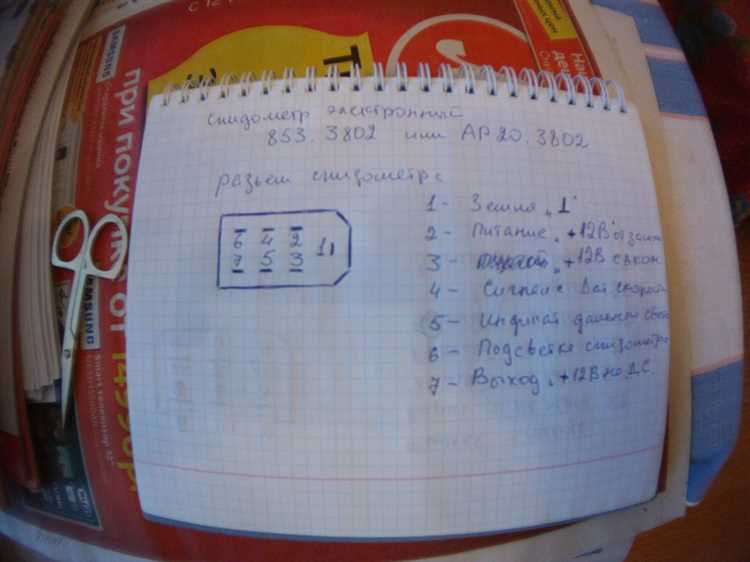 спидометр электронный
853.3802 или АР20.3802
разъем спидометра
6 4 2
7 5 3 1
1 - Земля „⊥"
2 - Питание „+12В" от замк
3 - „+12В с акк
4 - Сигнал с Дат скорости
5 - Индикат дальнего света
6 - Подсветка спидометра
7 - Выход „+12В на ДС
SAMSUNG
при покупке от 14990р.
SAMSUNG